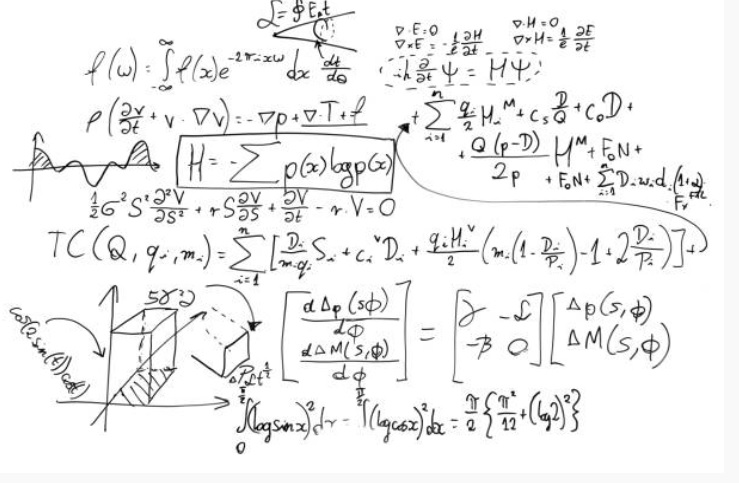 L = ∮ E. t
∇·E=0 ∇·H=0
∇×E = -1/c ∂H/∂t ∇×H = 1/c ∂E/∂t
f(ω) = ∫_{-∞}^{∞} f(x)e^{-2πixω} dx dt/dθ
iħ ∂/∂t Ψ = HΨ
ρ(∂v/∂t + v·∇v) = -∇p + ∇·T + f
+ ∑_{i=1}^{n} q_i/2 H_i^M + c_s D/Q + c_o D +
+ Q(p-D)/2p H^M + F_oN +
+ F_oN + ∑_{i=1}^{n} D_i w_i d_i
H = -∑ p(x) log p(x)
1/2 σ² S² ∂²V/∂S² + rS ∂V/∂S + ∂V/∂t - r·V = 0
TC(Q, q_i, m_i) = ∑_{i=1}^{n} [D_i/m_i q_i S_i + c_i^v D_i + q_i H_i^v/2 (m_i(1 - D_i/P_i) - 1 + 2 D_i/P_i)] +
[d Δp(s,ϕ)/dϕ
d ΔM(s,ϕ)/dϕ] = [γ -L
-β 0] [Δp(s,ϕ)
ΔM(s,ϕ)
∫_0^{π/2} (log sin x)² dx = ∫^{π/2} (log cos x)² dx = π/2 {π²/12 + (log 2)²}